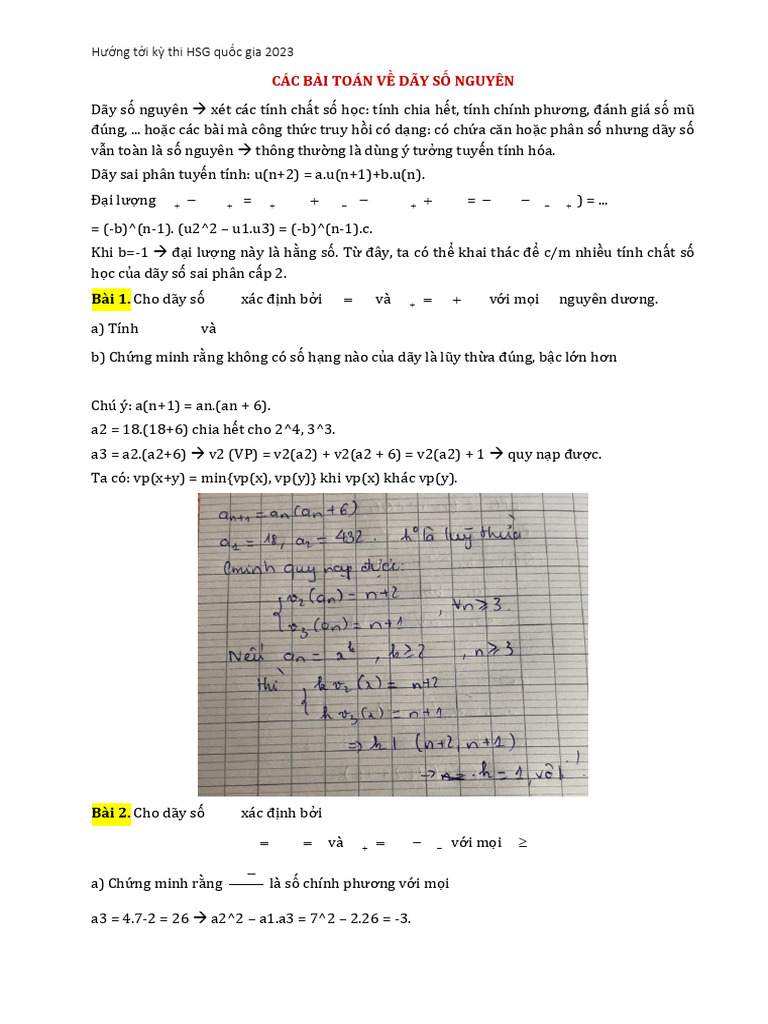 Hướng tới kỳ thi HSG quốc gia 2023
CÁC BÀI TOÁN VỀ DÃY SỐ NGUYÊN
Dãy số nguyên → xét các tính chất số học: tính chia hết, tính chính phương, đánh giá số mũ
đúng, ... hoặc các bài mà công thức truy hồi có dạng: có chứa căn hoặc phân số nhưng dãy số
vẫn toàn là số nguyên → thông thường là dùng ý tưởng tuyến tính hóa.
Dãy sai phân tuyến tính: u(n+2) = a.u(n+1)+b.u(n).
Đại lượng + − + = + + − − + + = − − − + ) = ...
= (-b)^(n-1). (u2^2 – u1.u3) = (-b)^(n-1).c.
Khi b=-1 → đại lượng này là hằng số. Từ đây, ta có thể khai thác để c/m nhiều tính chất số
học của dãy số sai phân cấp 2.
Bài 1. Cho dãy số xác định bởi = và + = + với mọi nguyên dương.
a) Tính và
b) Chứng minh rằng không có số hạng nào của dãy là lũy thừa đúng, bậc lớn hơn
Chú ý: a(n+1) = an.(an + 6).
a2 = 18.(18+6) chia hết cho 2^4, 3^3.
a3 = a2.(a2+6) → v2 (VP) = v2(a2) + v2(a2 + 6) = v2(a2) + 1 → quy nạp được.
Ta có: vp(x+y) = min{vp(x), vp(y)} khi vp(x) khác vp(y).
an+1 = an (an + 6)
a1 = 18, a2 = 432. ko là luỹ thừa
Cminh quy nạp được:
v2(an) = n+2
v3(an) = n+1 , ∀n ≥ 3.
Nếu an = x^k , k ≥ 2 , n ≥ 3
thì k v2(x) = n+2
k v3(x) = n+1
=> k | (n+2, n+1)
→ k = 1, vô lí!
Bài 2. Cho dãy số xác định bởi
= = và + = − − với mọi ≥
a) Chứng minh rằng − là số chính phương với mọi
a3 = 4.7-2 = 26 → a2^2 – a1.a3 = 7^2 – 2.26 = -3.